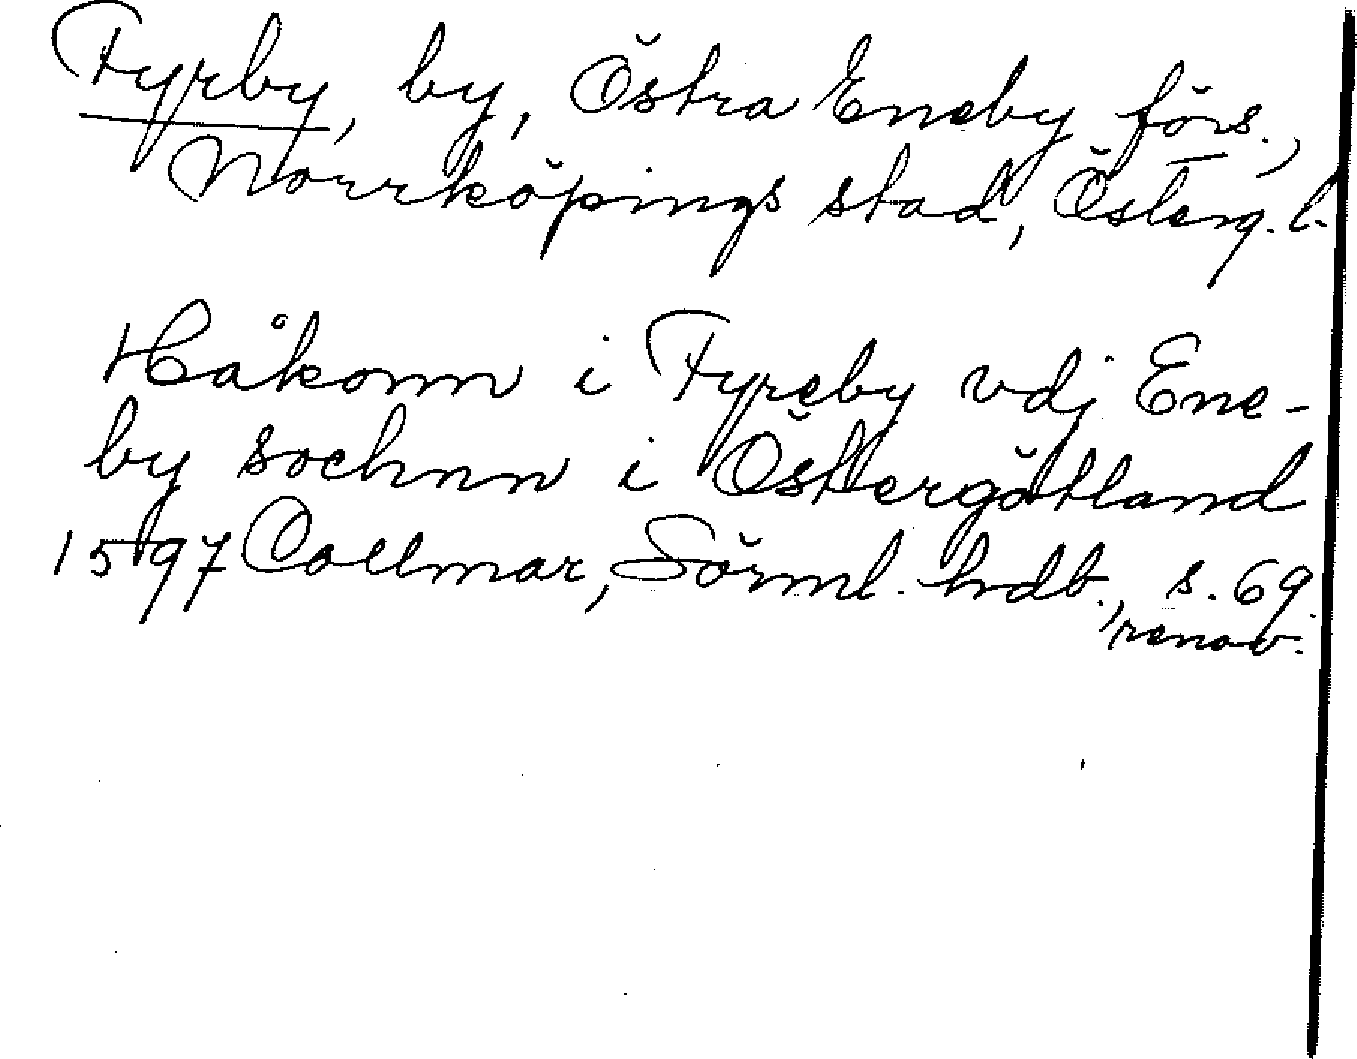 Fyrby, by, Östra Eneby förs.,
Norrköpings stad, Österg. l.
Håkonn i Fyreby vdj Ene-
by sochnn i Östergötland
1597 Collmar, Sörml. hdb., s. 69.
renov.